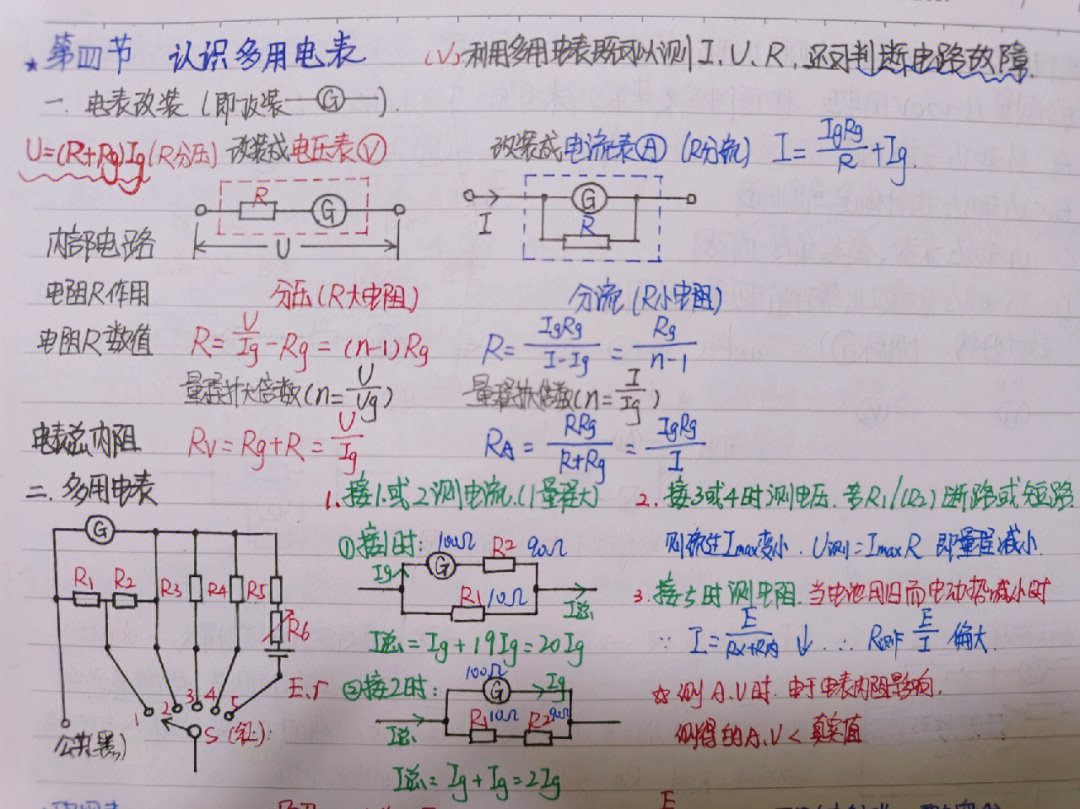 ★第四节 认识多用电表 (V).利用多用电表既可以测I、U、R,还可判断电路故障.
一.电表改装(即改装—Ⓖ—).
U=(R+Rg)Ig(R分压) 改装成电压表Ⓥ 改装成电流表Ⓐ (R分流) I=IgRg/R+Ig.
R G G
I R
内部电路 U
电阻R作用 分压(R大电阻) 分流(R小电阻)
电阻R数值 R=U/Ig-Rg=(n-1)Rg R=IgRg/I-Ig=Rg/n-1
量程扩大倍数(n=U/Ug) 量程扩大倍数(n=I/Ig)
电表总内阻 Rv=Rg+R=U/Ig RA=RRg/R+Rg=IgRg/I
二.多用电表 1.接1或2测电流.(1量程大) 2.接3或4时测电压.若R1/(R2)断路或短路
则流过Imax变小.U测=ImaxR 即量程减小.
①接1时: 100Ω R2 90Ω
G
Ig
R1 10Ω
I总
I总=Ig+19Ig=20Ig
3.接5时测电阻.当电池用旧而电动势减小时
∵I=E/Rx+R内↓.∴R测=E/I偏大.
G
R1 R2 R3 R4 R5
R6
E.r
1 2 3 4 5
S (红):
公共(黑)
②接2时: 100Ω
G Ig
R1 10Ω R2 90Ω
I总
I总=Ig+Ig=2Ig
☆测A.V时.由于电表内阻影响,
测得的A.V<真实值
E